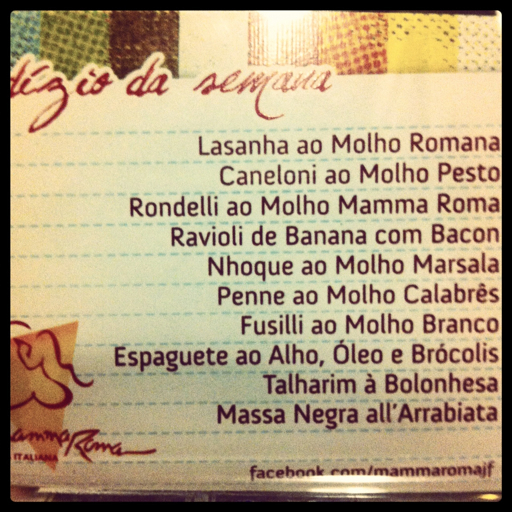 dízio da semana
Lasanha ao Molho Romana
Caneloni ao Molho Pesto
Rondelli ao Molho Mamma Roma
Ravioli de Banana com Bacon
Nhoque ao Molho Marsala
Penne ao Molho Calabrês
Fusilli ao Molho Branco
Espaguete ao Alho, Óleo e Brócolis
Talharim à Bolonhesa
Massa Negra all'Arrabiata
amma Roma
ITALIANA
facebook.com/mammaromajf